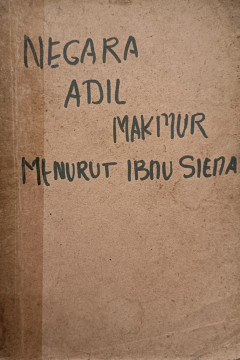 NEGARA
ADIL
MAKMUR
MENURUT IBNU SIENA